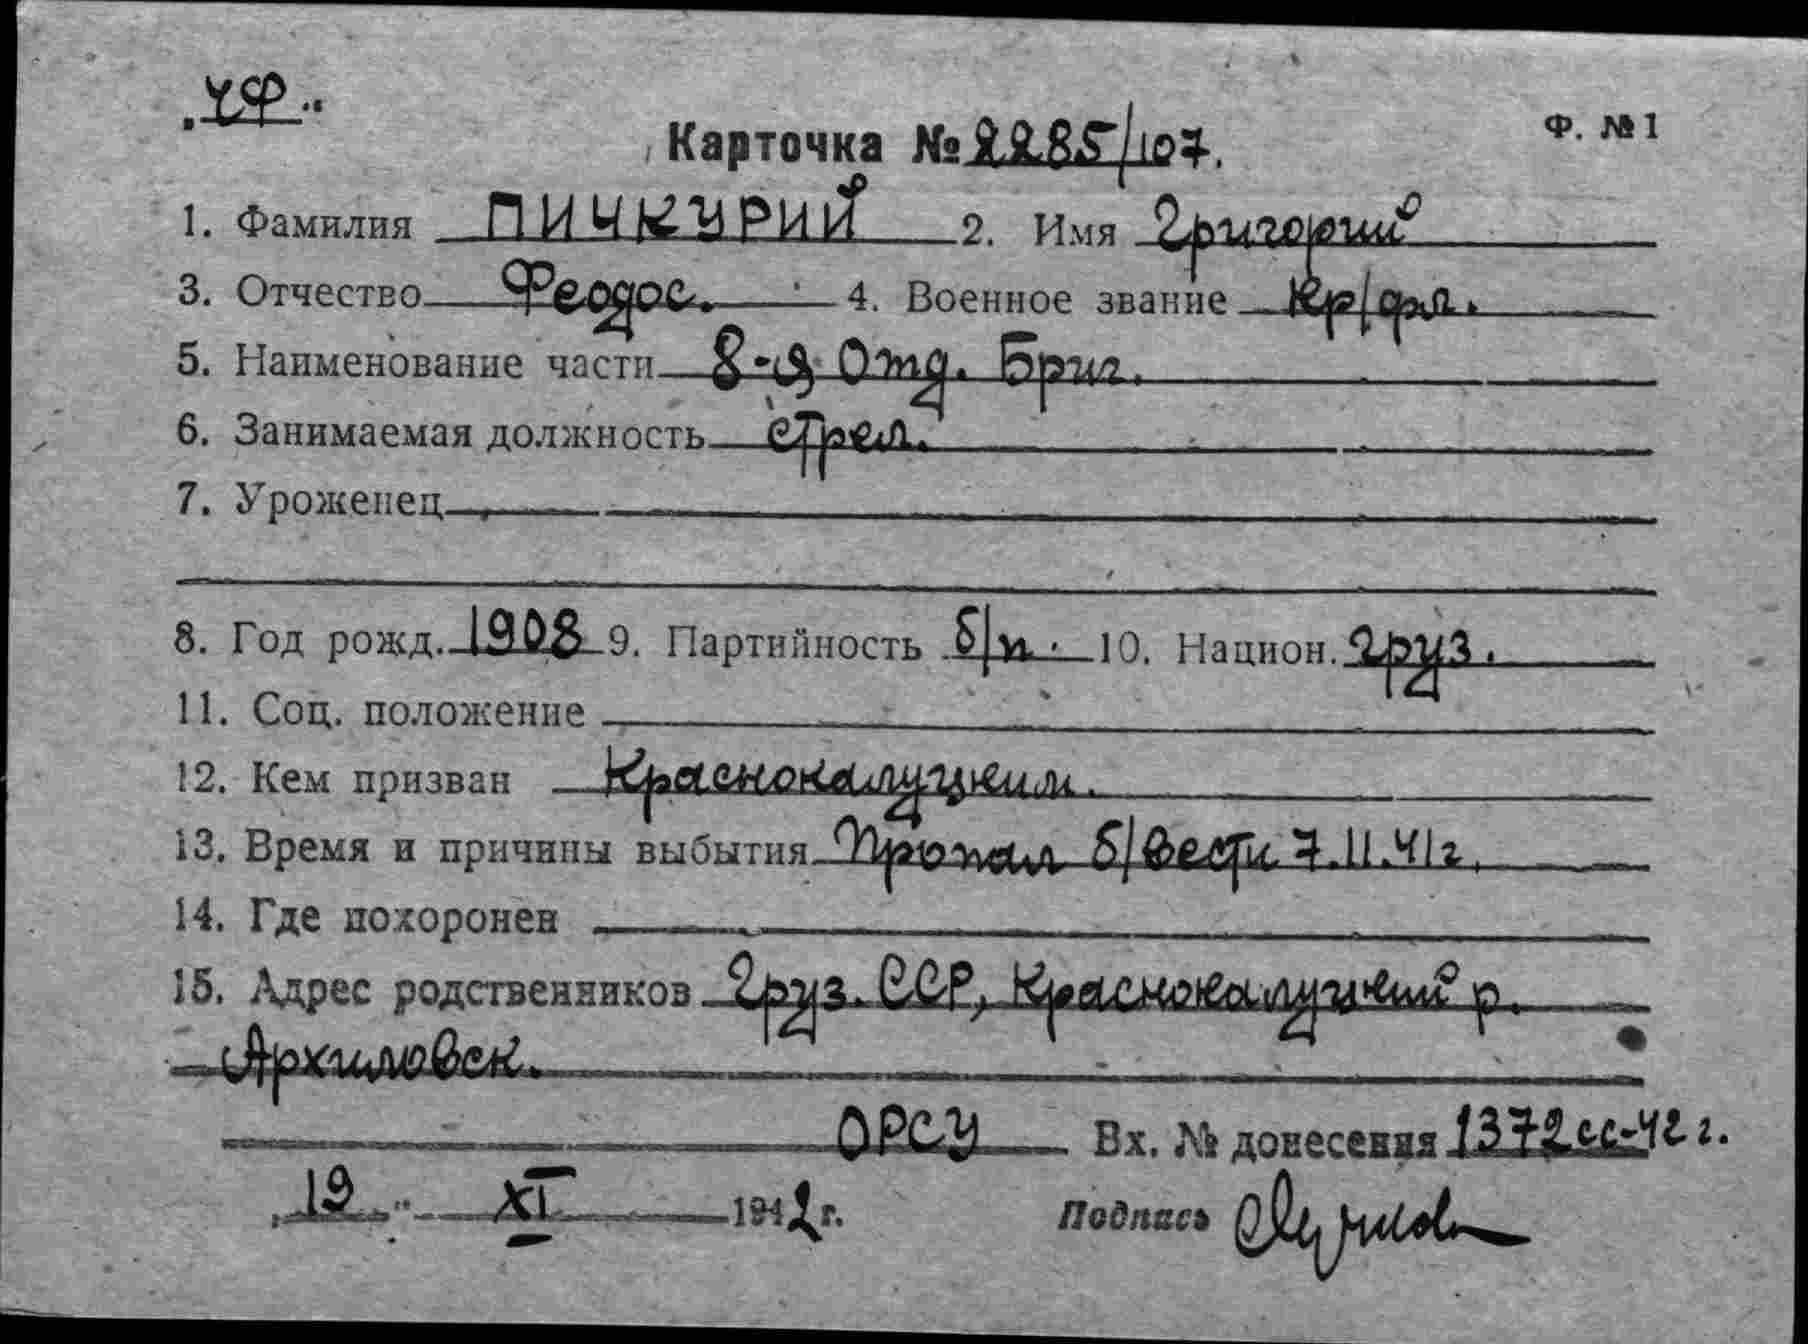 „ЧФ“
Ф. №1
Карточка № 2285/107.
1. Фамилия ПИЧКУРИЙ 2. Имя Григорий
3. Отчество Феодос. 4. Военное звание кр/фл.
5. Наименование части 8-я Отд. Бриг.
6. Занимаемая должность стрел.
7. Уроженец
8. Год рожд. 1908 9. Партийность б/п. 10. Национ. груз.
11. Соц. положение
12. Кем призван Краснокалуцким.
13. Время и причины выбытия Пропал б/вести 7.11.41г.
14. Где похоронен
15. Адрес родственников Груз. ССР, Краснокалуцкий р.
Архиловск.
ОРСУ Вх. № донесения 1372сс-42г.
„19“ XI 1942г. Подпись